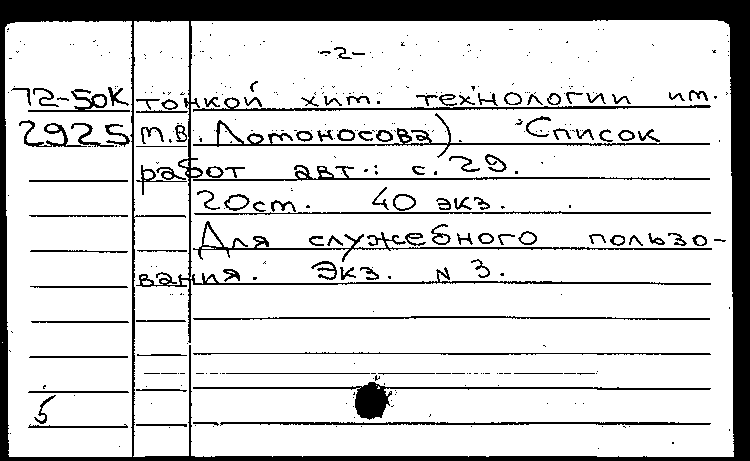 -2-
72-50К тонкой хим. технологии им.
2925 М.В. Ломоносова). Список
работ авт.: с. 29.
20ст. 40 экз.
Для служебного пользо-
вания. Экз. N 3.
5